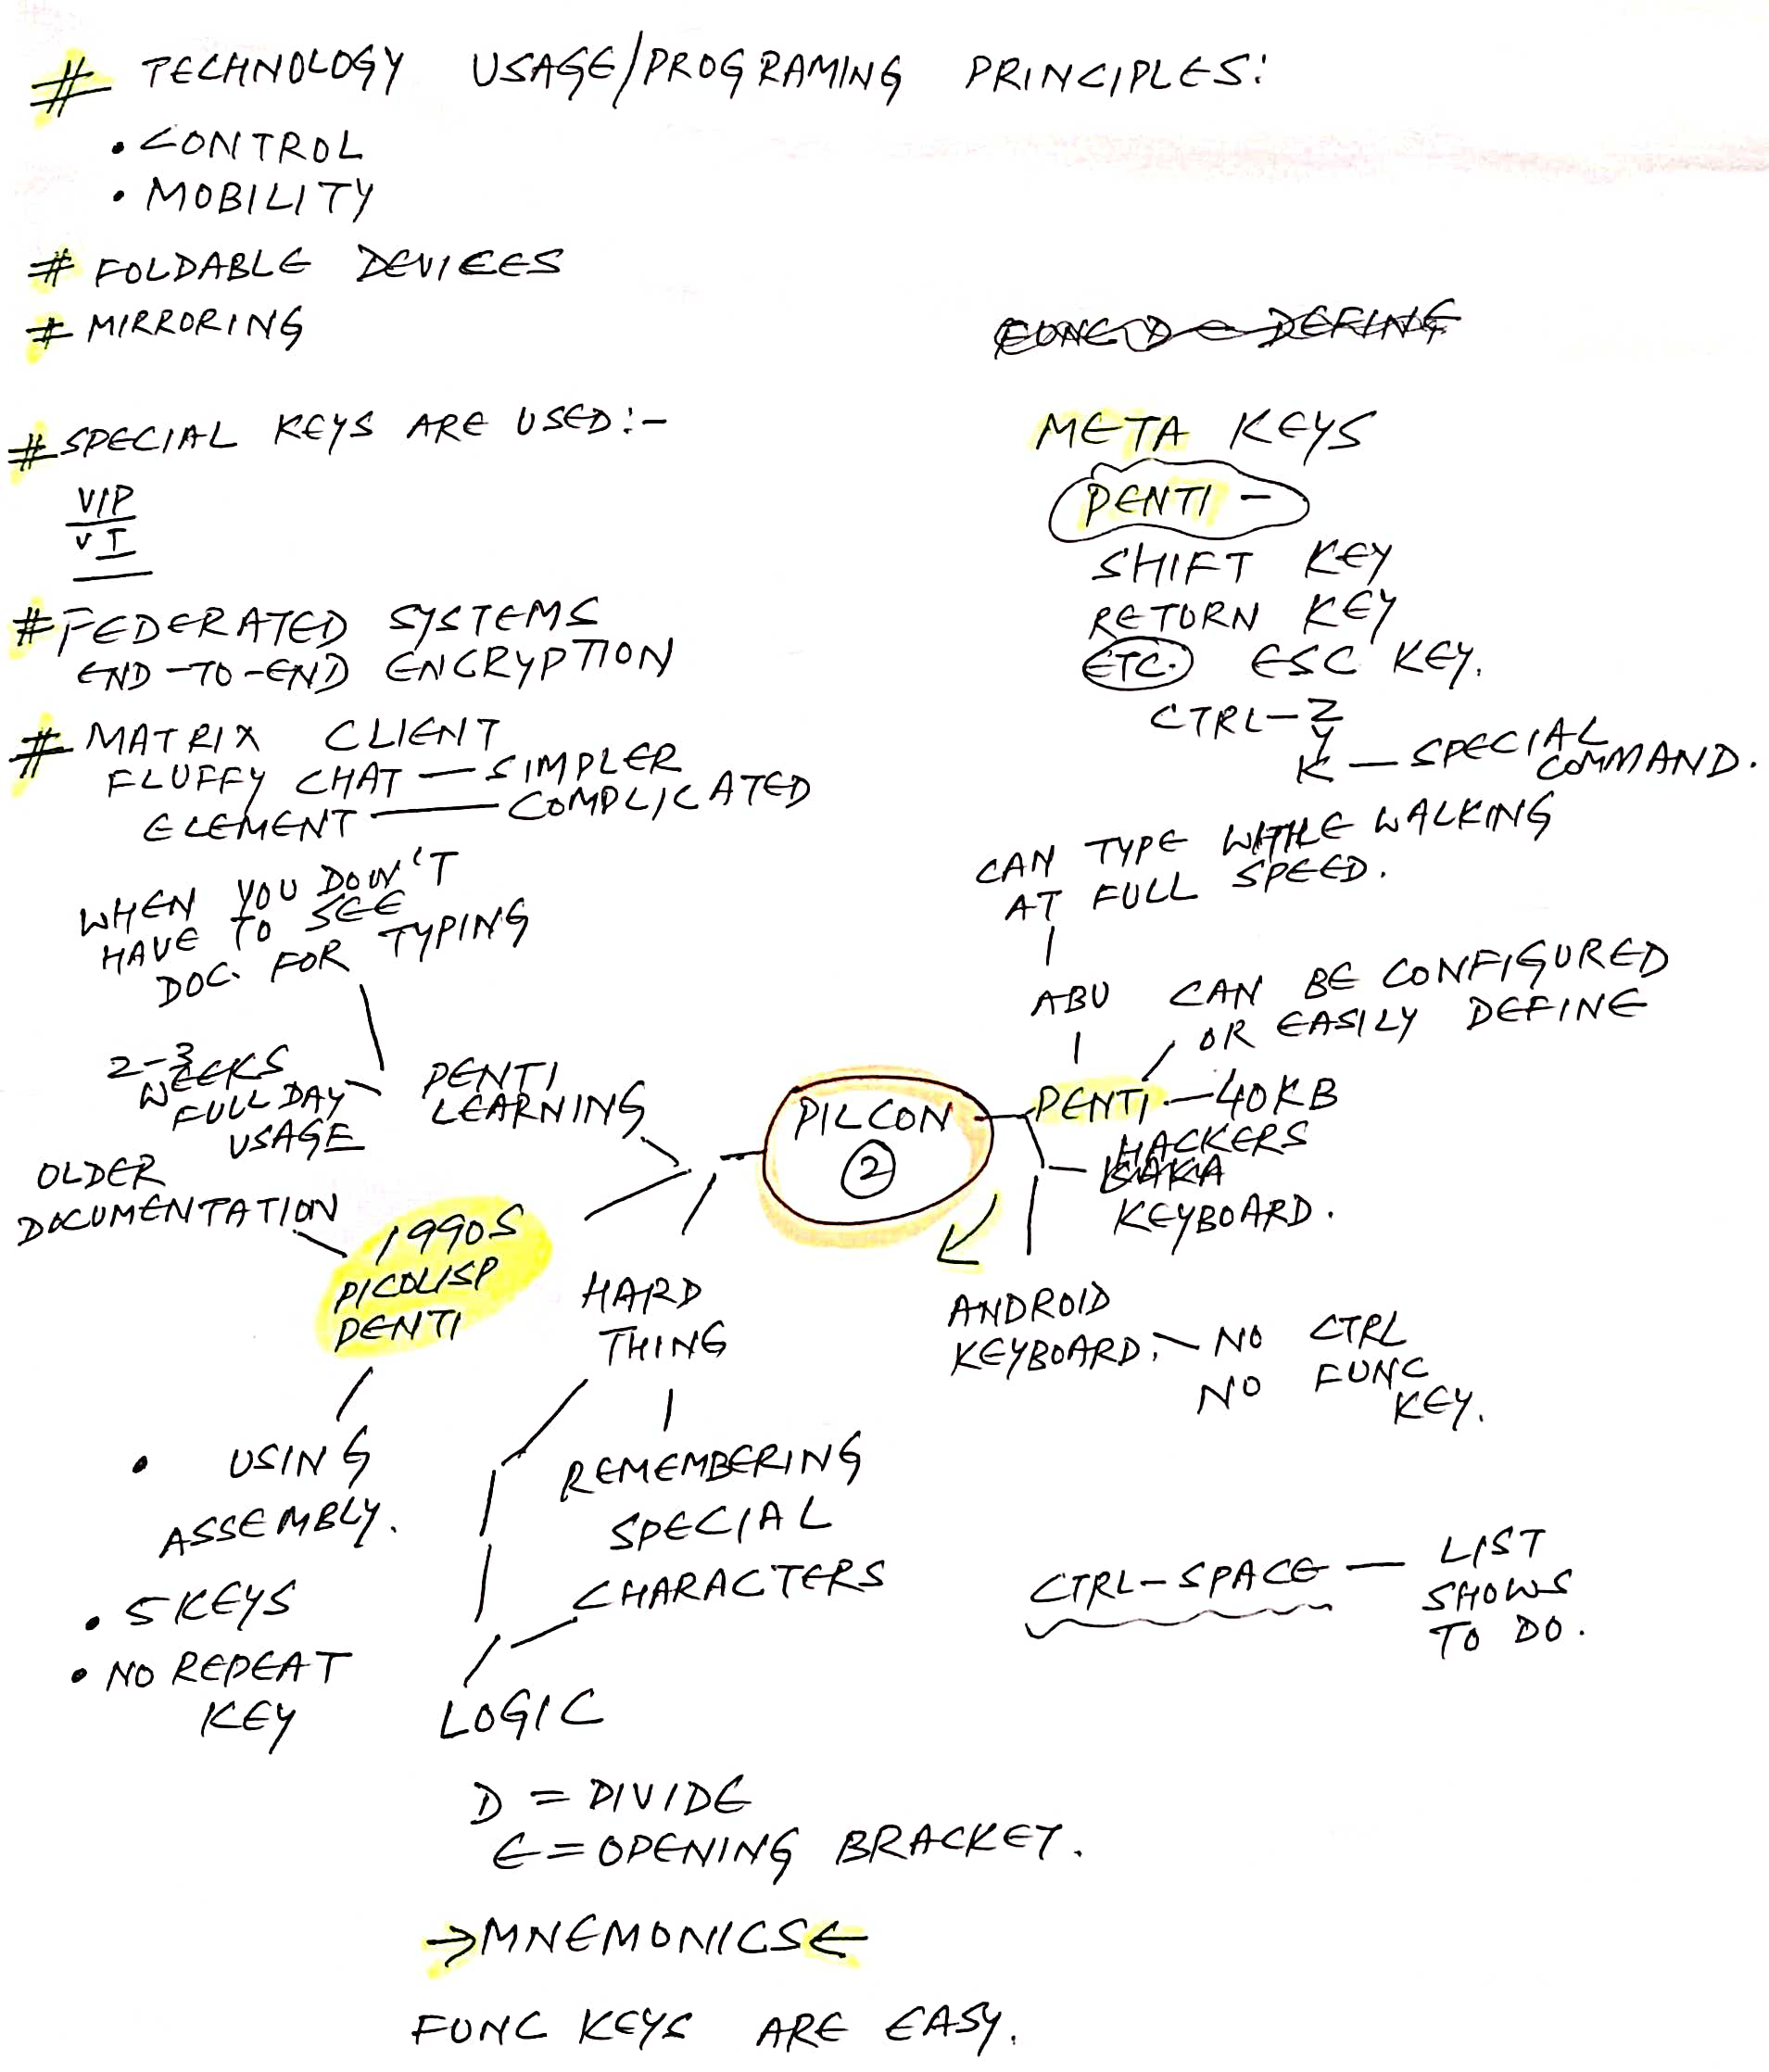 # TECHNOLOGY USAGE/PROGRAMING PRINCIPLES:
• CONTROL
• MOBILITY
# FOLDABLE DEVICES
# MIRRORING
# SPECIAL KEYS ARE USED:-
VIP
VI
# FEDERATED SYSTEMS
END-TO-END ENCRYPTION
# MATRIX CLIENT
FLUFFY CHAT — SIMPLER
ELEMENT — COMPLICATED
WHEN YOU DON'T
HAVE TO SEE
DOC. FOR TYPING
2-3
WEEKS
FULL DAY
USAGE
PENTI
LEARNING
OLDER
DOCUMENTATION
1990S
PICOLISP
PENTI
• USING
ASSEMBLY.
• 5 KEYS
• NO REPEAT
KEY
HARD
THING
REMEMBERING
SPECIAL
CHARACTERS
LOGIC
D = DIVIDE
E = OPENING BRACKET.
→ MNEMONICS ←
FUNC KEYS ARE EASY.
PILCON
2
FUNC D - DEFINE
META KEYS
PENTI -
SHIFT KEY
RETURN KEY
ETC. ESC KEY.
CTRL-Z
Y
K — SPECIAL
COMMAND.
CAN TYPE WHILE WALKING
AT FULL SPEED.
ABU
CAN BE CONFIGURED
OR EASILY DEFINE
PENTI — 40KB
HACKERS
KEYBOARD.
ANDROID
KEYBOARD. — NO CTRL
NO FUNC
KEY.
CTRL-SPACE — LIST
SHOWS
TO DO.